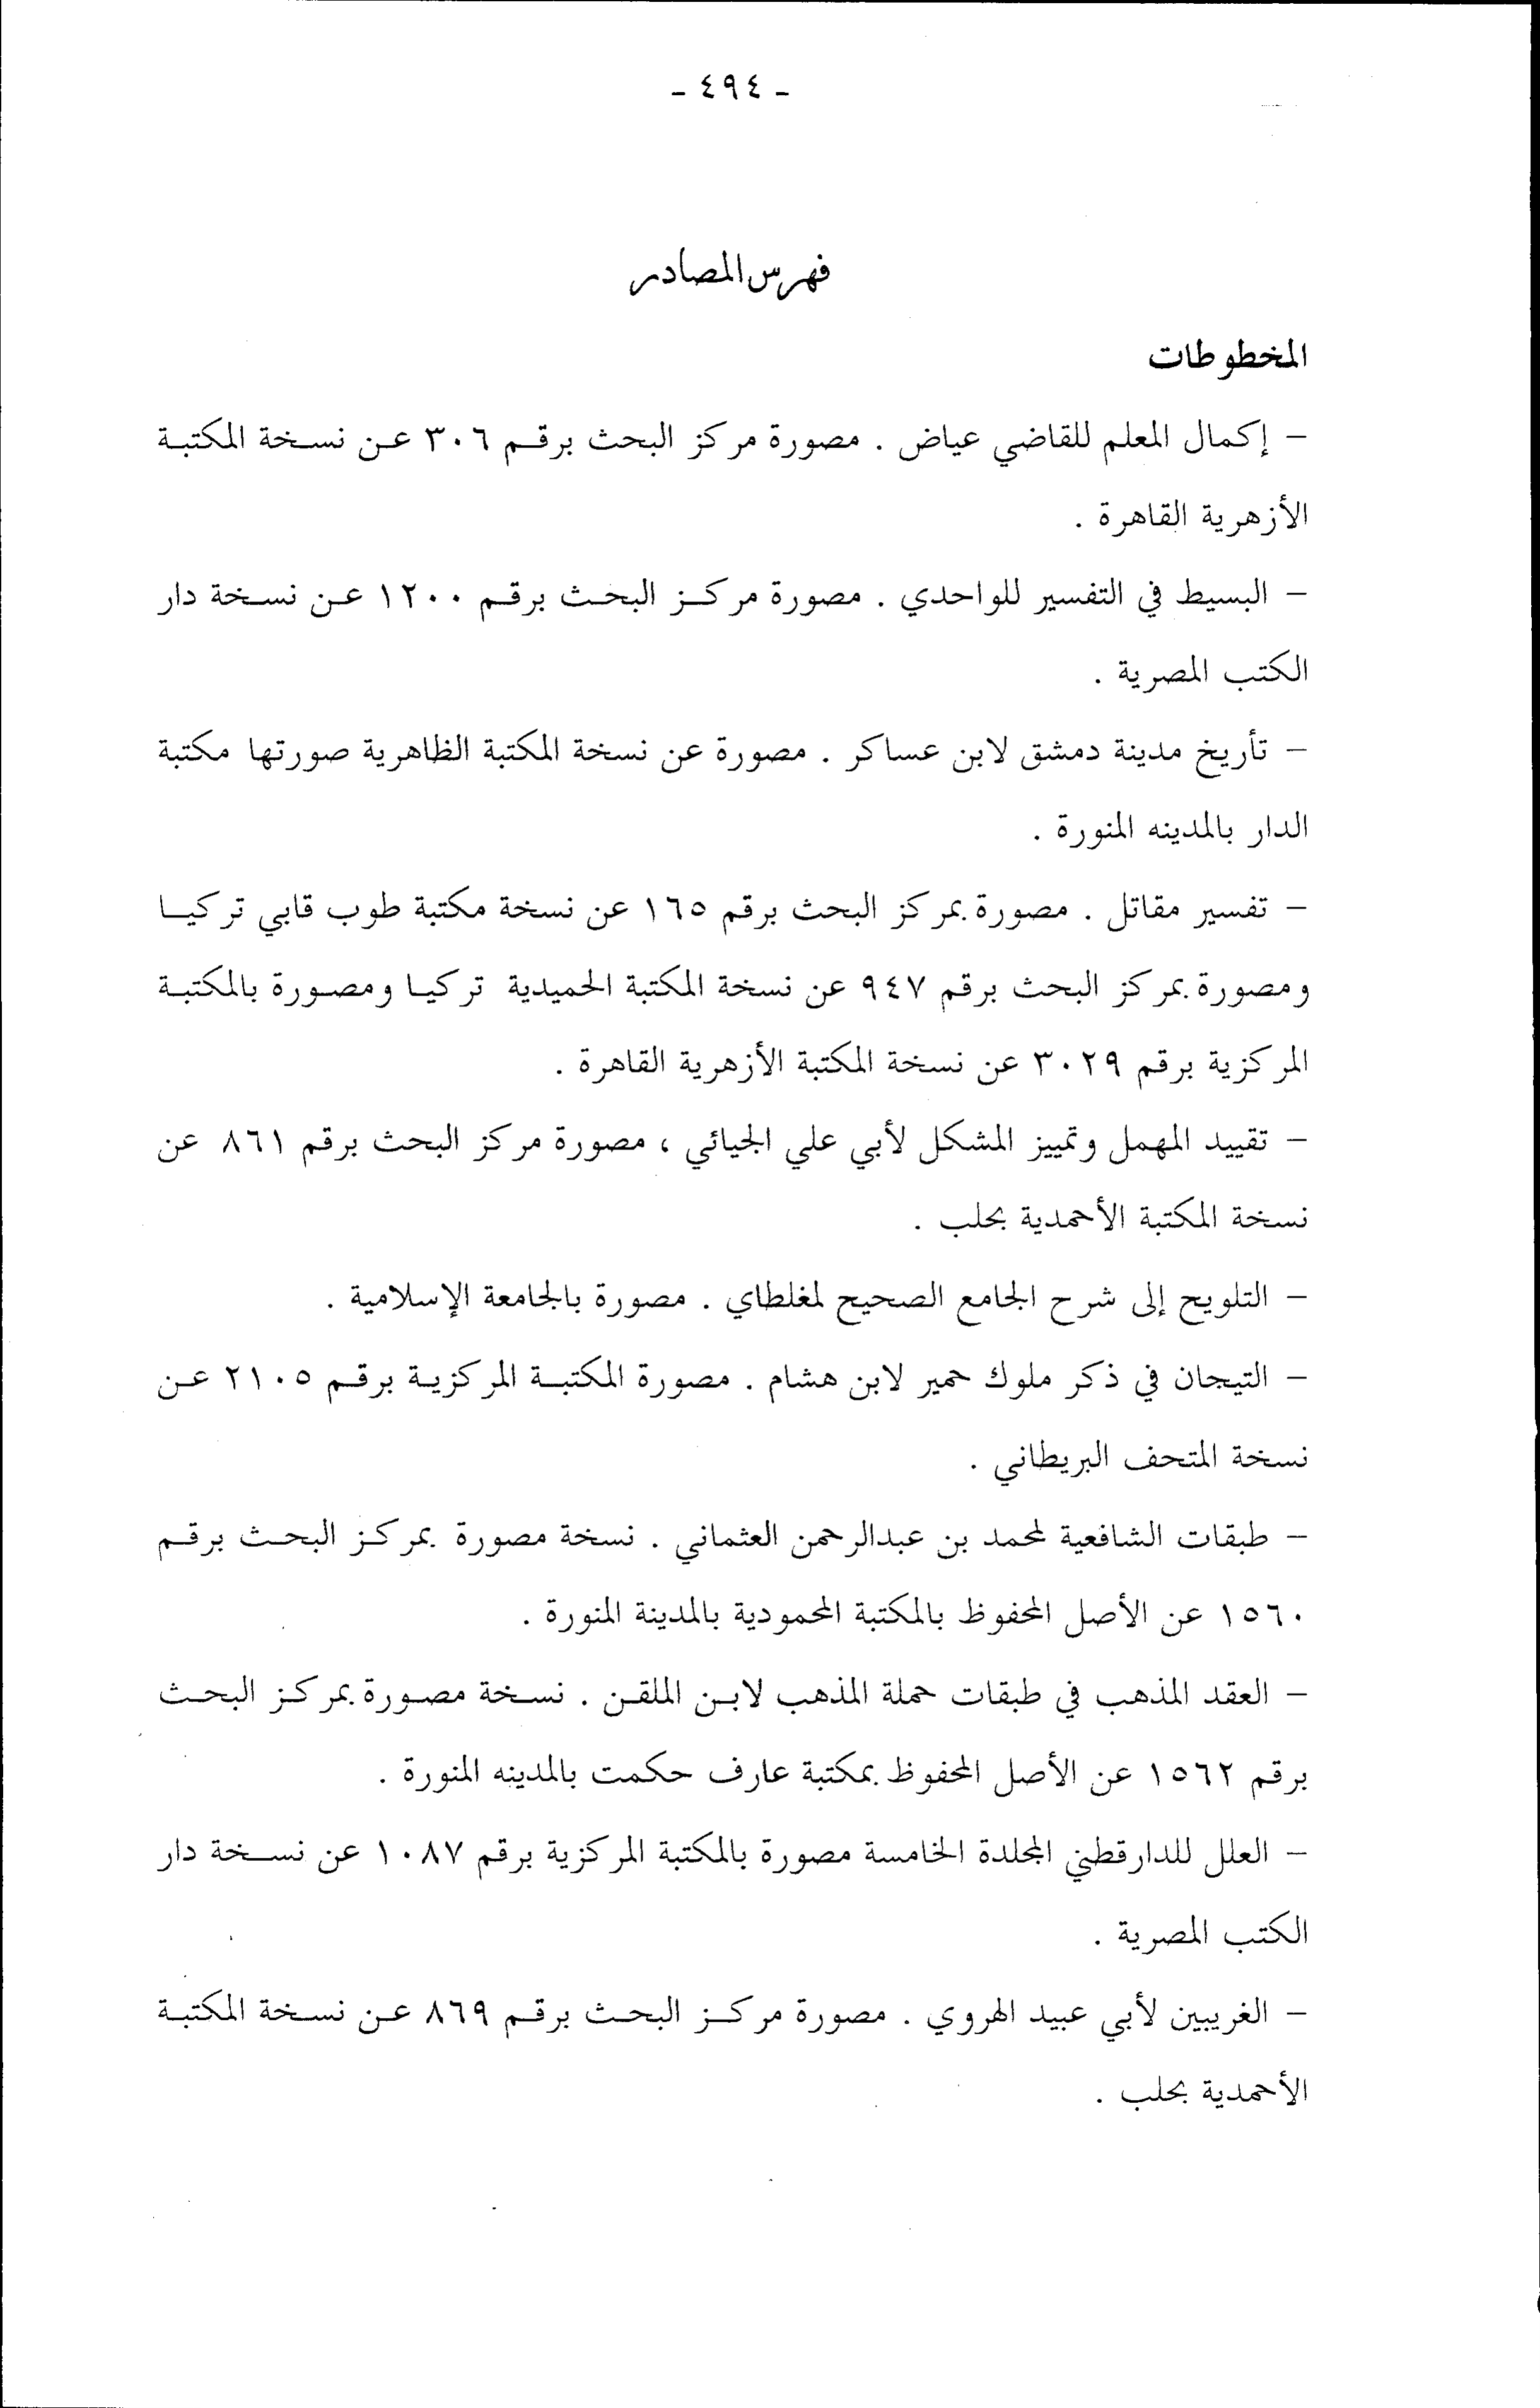 - ٤٩٤ -
فهرس المصادر
المخطوطات
– إكمال المعلم للقاضي عياض . مصورة مركز البحث برقم ٣٠٦ عن نسخة المكتبة
الأزهرية القاهرة .
– البسيط في التفسير للواحدي . مصورة مركز البحث برقم ١٢٠٠ عن نسخة دار
الكتب المصرية .
– تأريخ مدينة دمشق لابن عساكر . مصورة عن نسخة المكتبة الظاهرية صورتها مكتبة
الدار بالمدينه المنورة .
– تفسير مقاتل . مصورة بمركز البحث برقم ١٦٥ عن نسخة مكتبة طوب قابي تركيا
ومصورة بمركز البحث برقم ٩٤٧ عن نسخة المكتبة الحميدية تركيا ومصورة بالمكتبة
المركزية برقم ٣٠٢٩ عن نسخة المكتبة الأزهرية القاهرة .
– تقييد المهمل وتمييز المشكل لأبي علي الجيائي ، مصورة مركز البحث برقم ٨٦١ عن
نسخة المكتبة الأحمدية بحلب .
– التلويح إلى شرح الجامع الصحيح لمغلطاي . مصورة بالجامعة الإسلامية .
– التيجان في ذكر ملوك حمير لابن هشام . مصورة المكتبة المركزية برقم ٢١٠٥ عن
نسخة المتحف البريطاني .
– طبقات الشافعية لمحمد بن عبدالرحمن العثماني . نسخة مصورة بمركز البحث برقم
١٥٦٠ عن الأصل المحفوظ بالمكتبة المحمودية بالمدينة المنورة .
– العقد المذهب في طبقات حملة المذهب لابن الملقن . نسخة مصورة بمركز البحث
برقم ١٥٦٢ عن الأصل المحفوظ بمكتبة عارف حكمت بالمدينه المنورة .
– العلل للدارقطني المجلدة الخامسة مصورة بالمكتبة المركزية برقم ١٠٨٧ عن نسخة دار
الكتب المصرية .
– الغريبين لأبي عبيد الهروي . مصورة مركز البحث برقم ٨٦٩ عن نسخة المكتبة
الأحمدية بحلب .